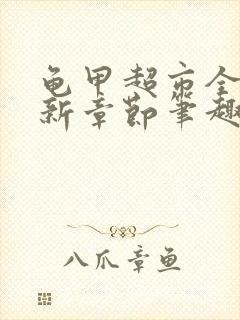 龟甲超市全
新章節筆趣
八爪章鱼